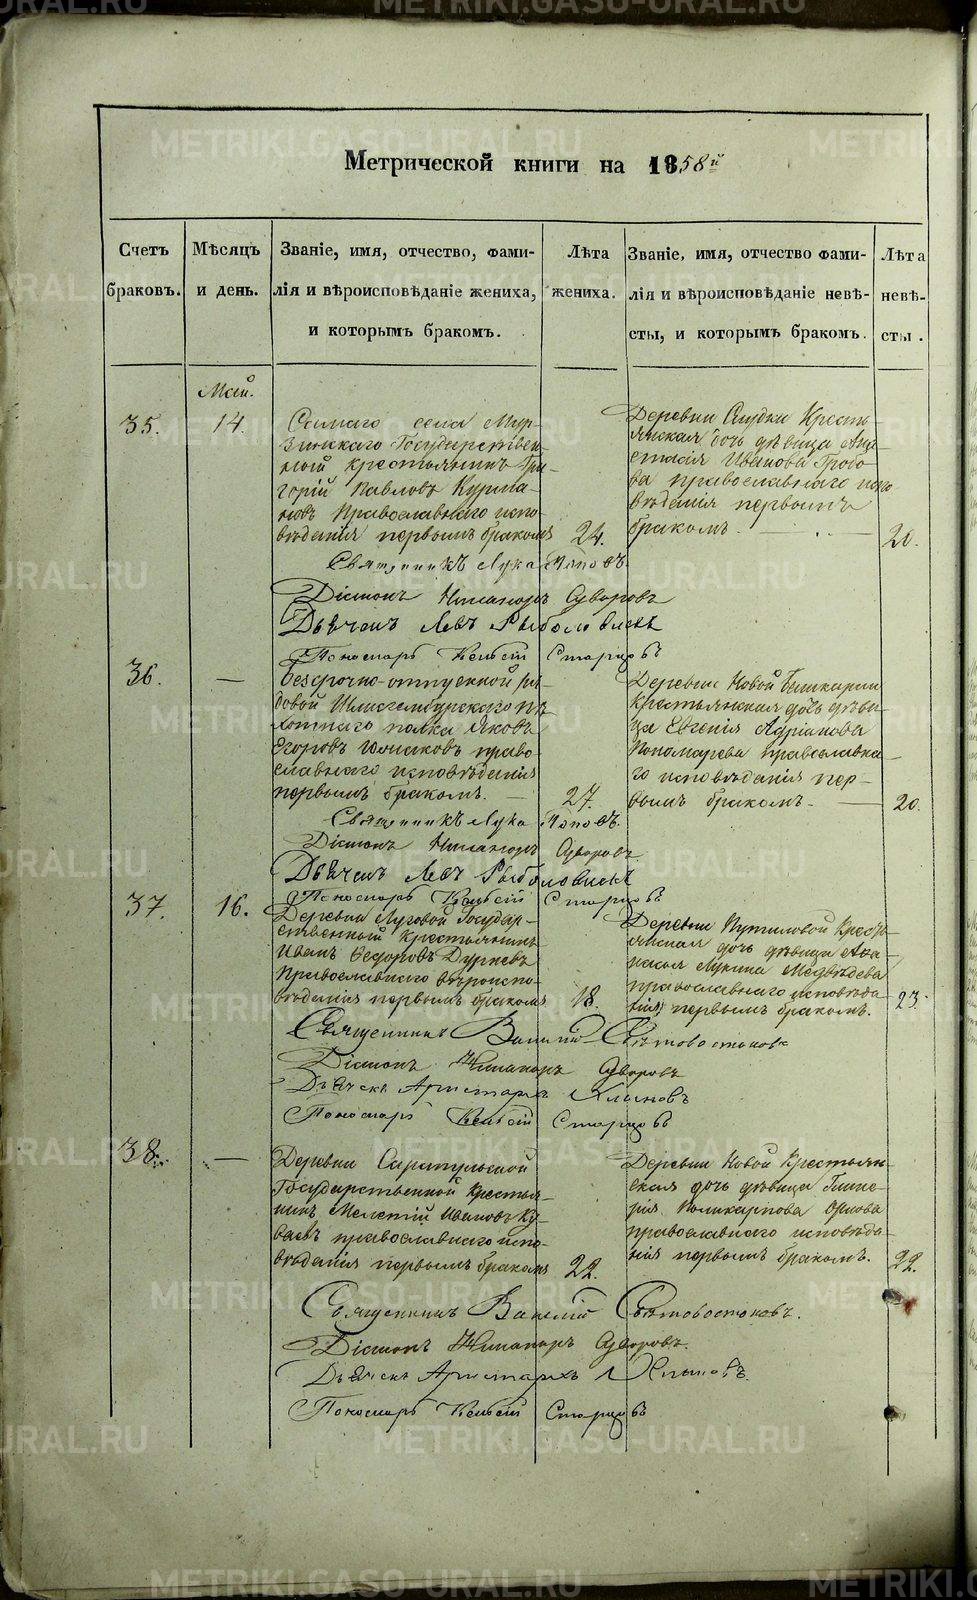 Метрической книги на 1858й
Счетъ браковъ.
Мѣсяцъ и день.
Званіе, имя, отчество, фами-
лія и вѣроисповѣданіе жениха,
и которымъ бракомъ.
Лѣта жениха.
Званіе, имя, отчество фами-
лія и вѣроисповѣданіе невѣ-
сты, и которымъ бракомъ.
Лѣта невѣ-
сты.
Май.
35.
14.
Самаго села Мур-
зинскаго Государствен-
ный крестьянинъ Гри-
горій Павловъ Курма-
новъ Православнаго испо-
вѣданія первымъ бракомъ
24.
Деревни Слудки Кресть-
янская дочь дѣвица Ана-
стасія Иванова Гробо
ва православнаго испо
вѣданія первымъ
бракомъ.
20.
Священникъ Лука Поповъ
Діаконъ Никаноръ Суворовъ
Дьячекъ Левъ Рыболовлевъ
Пономарь Старцовъ
36.
—
безсрочно-отпускной ря-
довой Шлиссельбургскаго пѣ
хотнаго полка Яковъ
Егоровъ право
славнаго исповѣданія
первымъ бракомъ. —
27.
Деревни Новой Башкарки
крестьянская дочь дѣви-
ца Евгенія Адріанова
Пономарева православна-
го исповѣданія пер-
вымъ бракомъ. —
20.
Священникъ Лука Поповъ.
Діаконъ Никаноръ Суворовъ
Дьячекъ Левъ Рыболовлевъ
Пономарь Старцовъ
37.
16.
Деревни Луговой Государ-
ственный крестьянинъ
Иванъ Ѳедоровъ Дурневъ
Православнаго вѣроиспо-
вѣданія первымъ бракомъ
18.
Деревни Путиловой Кресть-
янская дочь дѣвица
Лукина Медвѣдева
православнаго исповѣда-
нія первымъ бракомъ.
23.
Священникъ Василій Свѣтовостоковъ
Діаконъ Никаноръ Суворовъ
Дьячекъ Аристархъ Хлыновъ
Пономарь Старцовъ
38.
—
Деревни Сарапульской
Государственной Крестья-
нинъ Мелетій Ивановъ Ку-
ваевъ православнаго испо-
вѣданія первымъ бракомъ
22.
Деревни Новой Крестьян-
ская дочь дѣвица Глике-
рія Поликарпова Орлова
православнаго исповѣда-
нія первымъ бракомъ.
22.
Священникъ Василій Свѣтовостоковъ.
Діаконъ Никаноръ Суворовъ.
Дьячекъ Аристархъ Хлыновъ.
Пономарь Старцовъ
METRIKI.GASO-URAL.RU